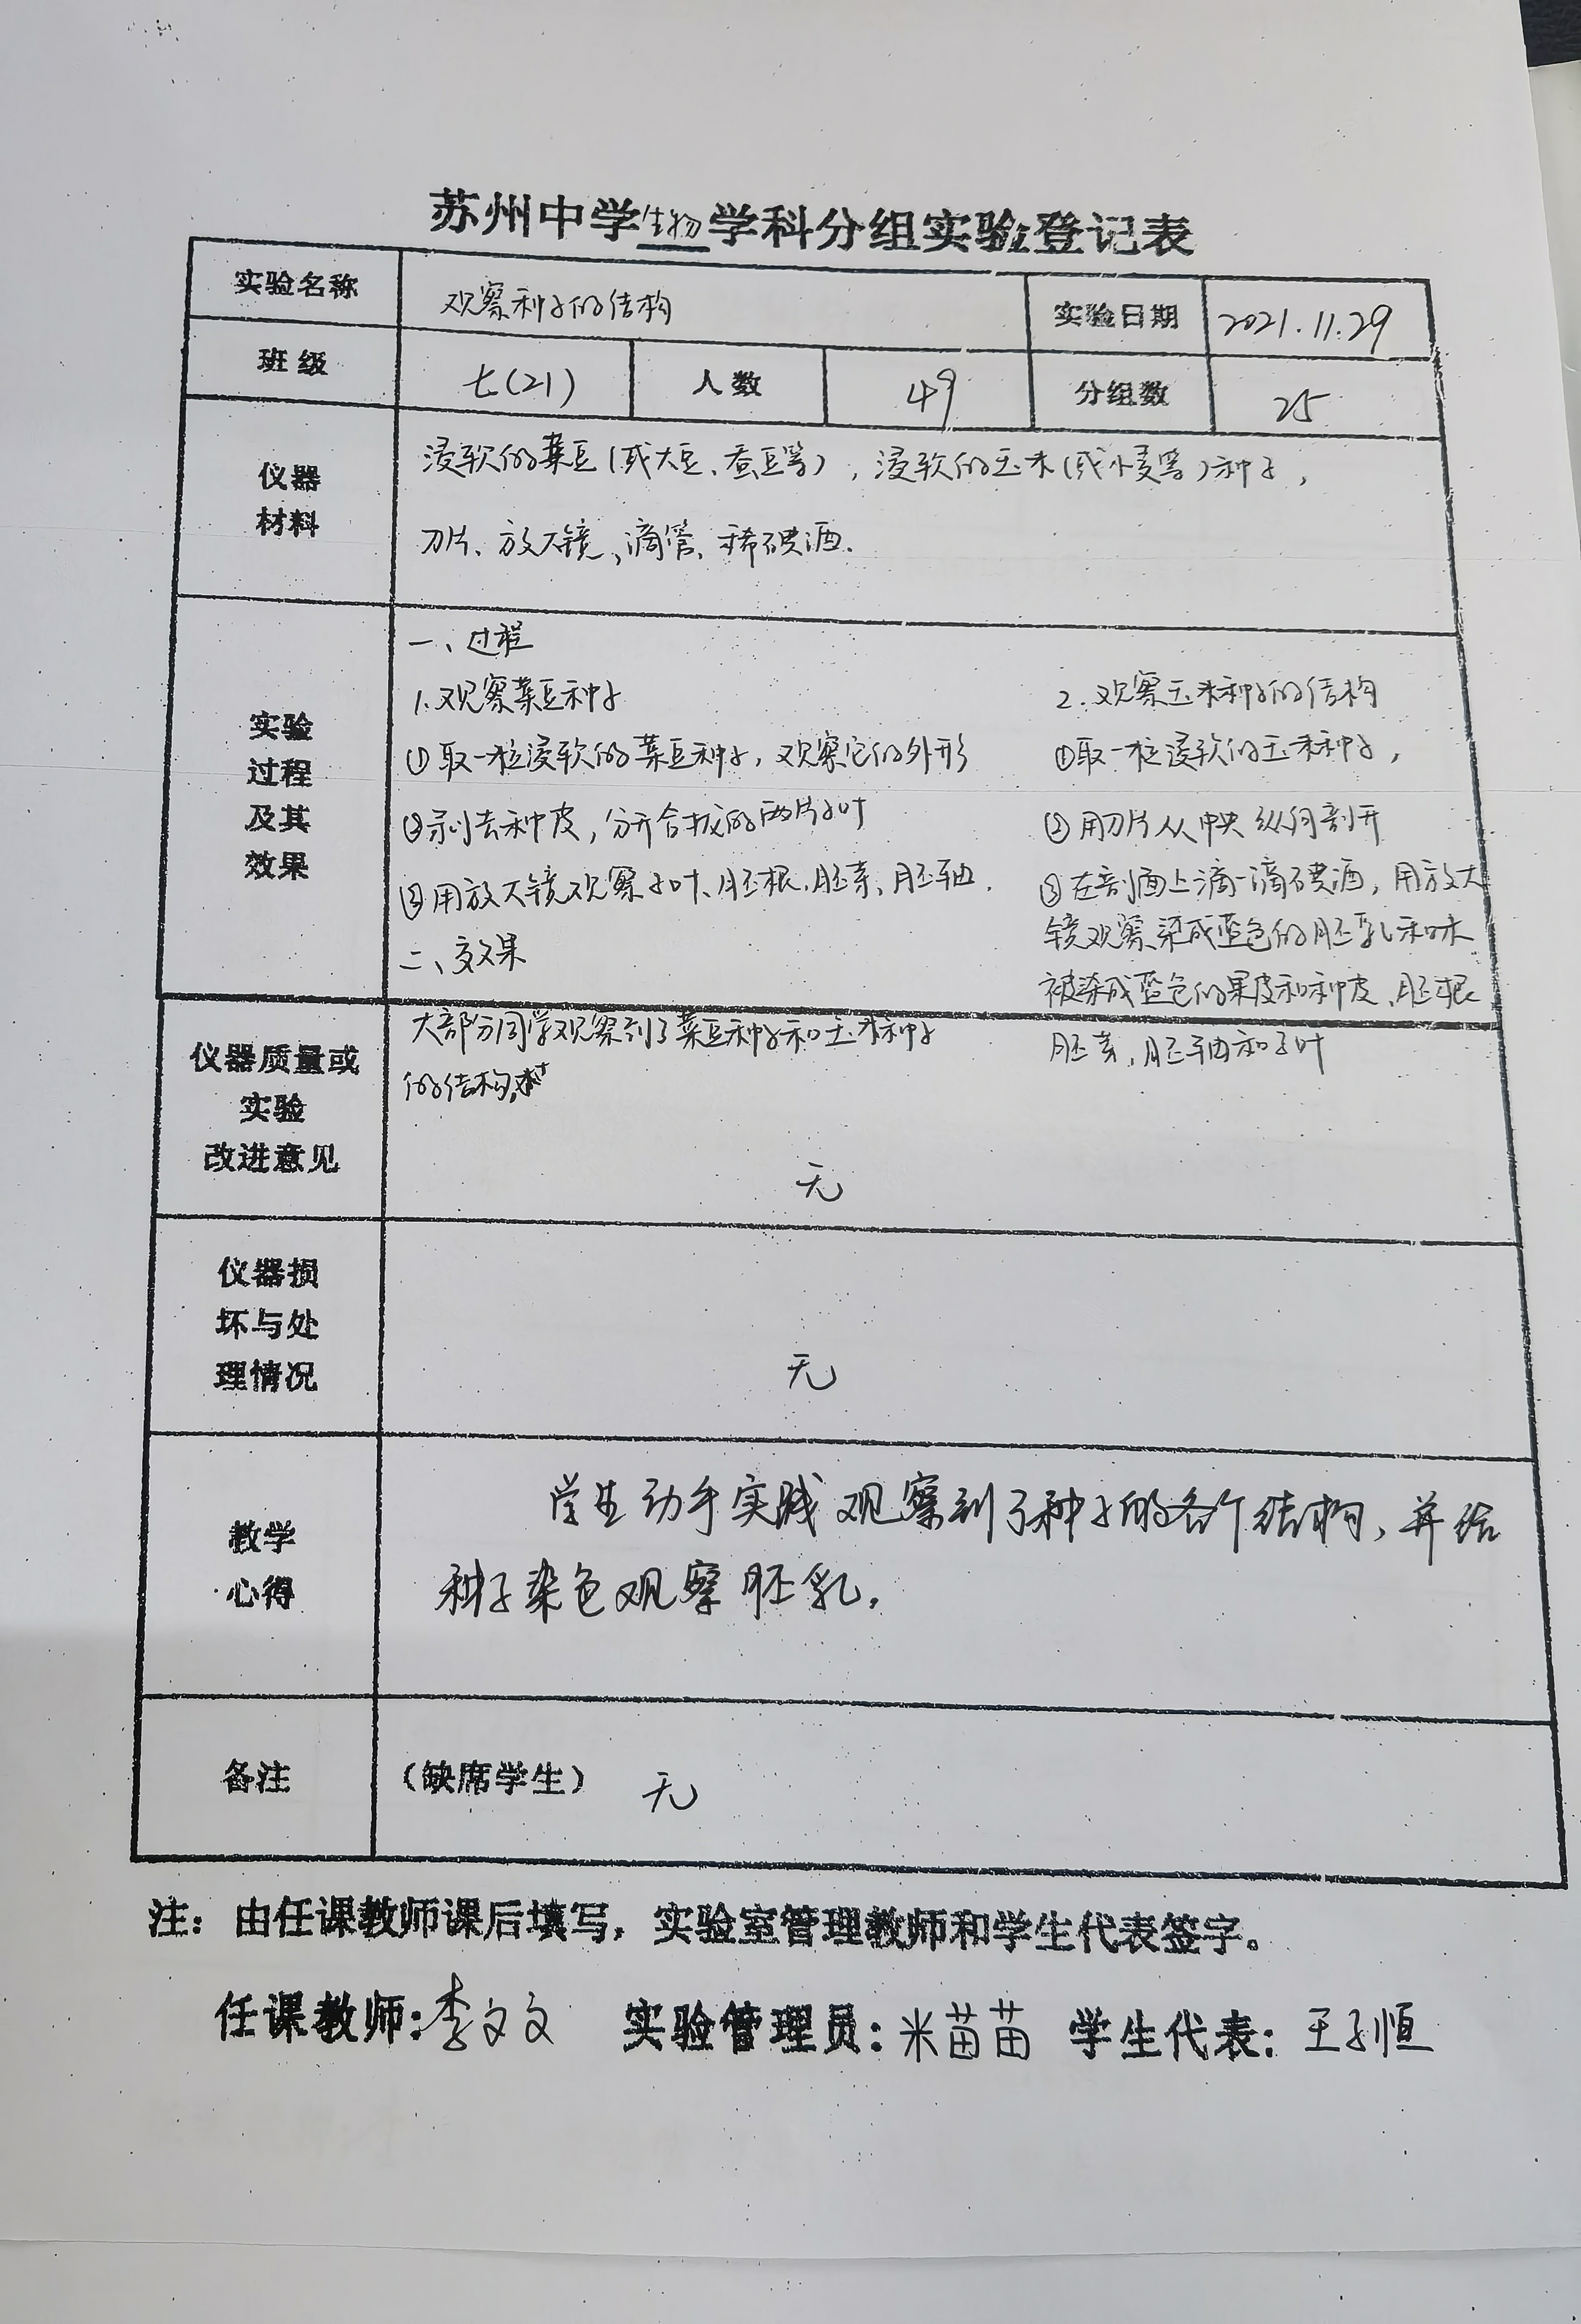 苏州中学生物学科分组实验登记表
实验名称 观察种子的结构 实验日期 2021.11.29
班级 七(21) 人数 49 分组数 25
仪器
材料
浸软的菜豆(或大豆、蚕豆等),浸软的玉米(或小麦等)种子,
刀片、放大镜、滴管、稀碘酒.
实验
过程
及其
效果
一、过程
1.观察菜豆种子
①取一粒浸软的菜豆种子,观察它的外形
②剥去种皮,分开合拢的两片子叶
③用放大镜观察子叶、胚根、胚芽、胚轴.
二、效果
大部分同学观察到了菜豆种子和玉米种子
的结构
2.观察玉米种子的结构
①取一粒浸软的玉米种子,
②用刀片从中央纵向剖开
③在剖面上滴一滴碘酒,用放大
镜观察染成蓝色的胚乳和未
被染成蓝色的果皮和种皮、胚根
胚芽,胚轴和子叶
仪器质量或
实验
改进意见
无
仪器损
坏与处
理情况
无
教学
心得
学生动手实践观察到了种子的各个结构,并给
种子染色观察胚乳。
备注 (缺席学生) 无
注:由任课教师课后填写,实验室管理教师和学生代表签字。
任课教师:李文文 实验管理员:米苗苗 学生代表:王子恒